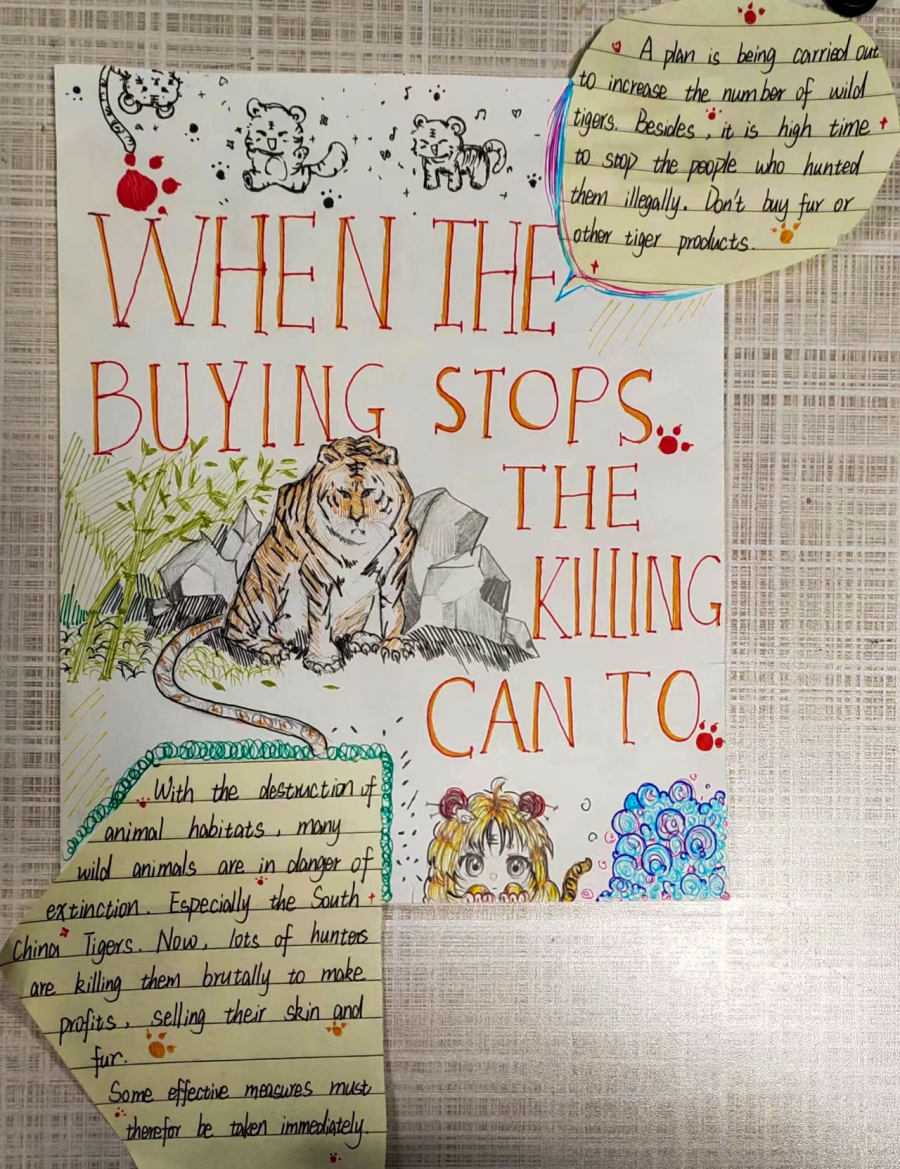 A plan is being carried out
to increase the number of wild
tigers. Besides, it is high time
to stop the people who hunted
them illegally. Don't buy fur or
other tiger products.
WHEN THE
BUYING STOPS
THE
KILLING
CAN TO
With the destruction of
animal habitats, many
wild animals are in danger of
extinction. Especially the South
China Tigers. Now, lots of hunters
are killing them brutally to make
profits, selling their skin and
fur.
Some effective measures must
therefor be taken immediately.